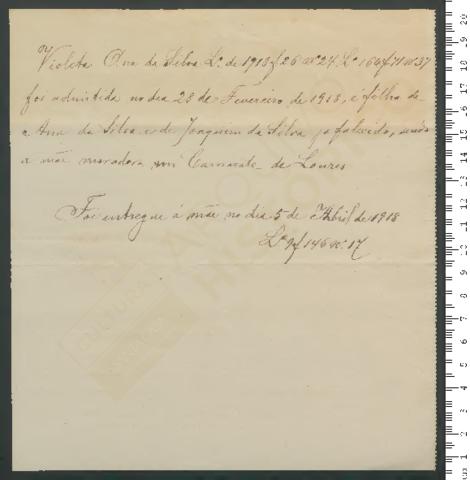 Violeta Ana da Silva L.º de 1913 f 26 nº 24 L.º 16 of 71 nº 37
foi admittida no dia 28 de Fevereiro de 1913, é filha de
Ana da Silva e de Joaquim da Silva ja falecido, sendo
a mãe moradora em Camarate de Loures
Foi entregue á mãe no dia 5 de Abril de 1918
L.º 9 f 146 nº 17
CULTURA